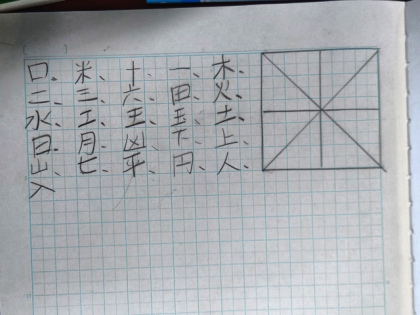 口、米、十、一、木、
二、三、六、田、火、
水、工、王、五、土、
日、月、凶、下、上、
山、七、平、円、人、
入